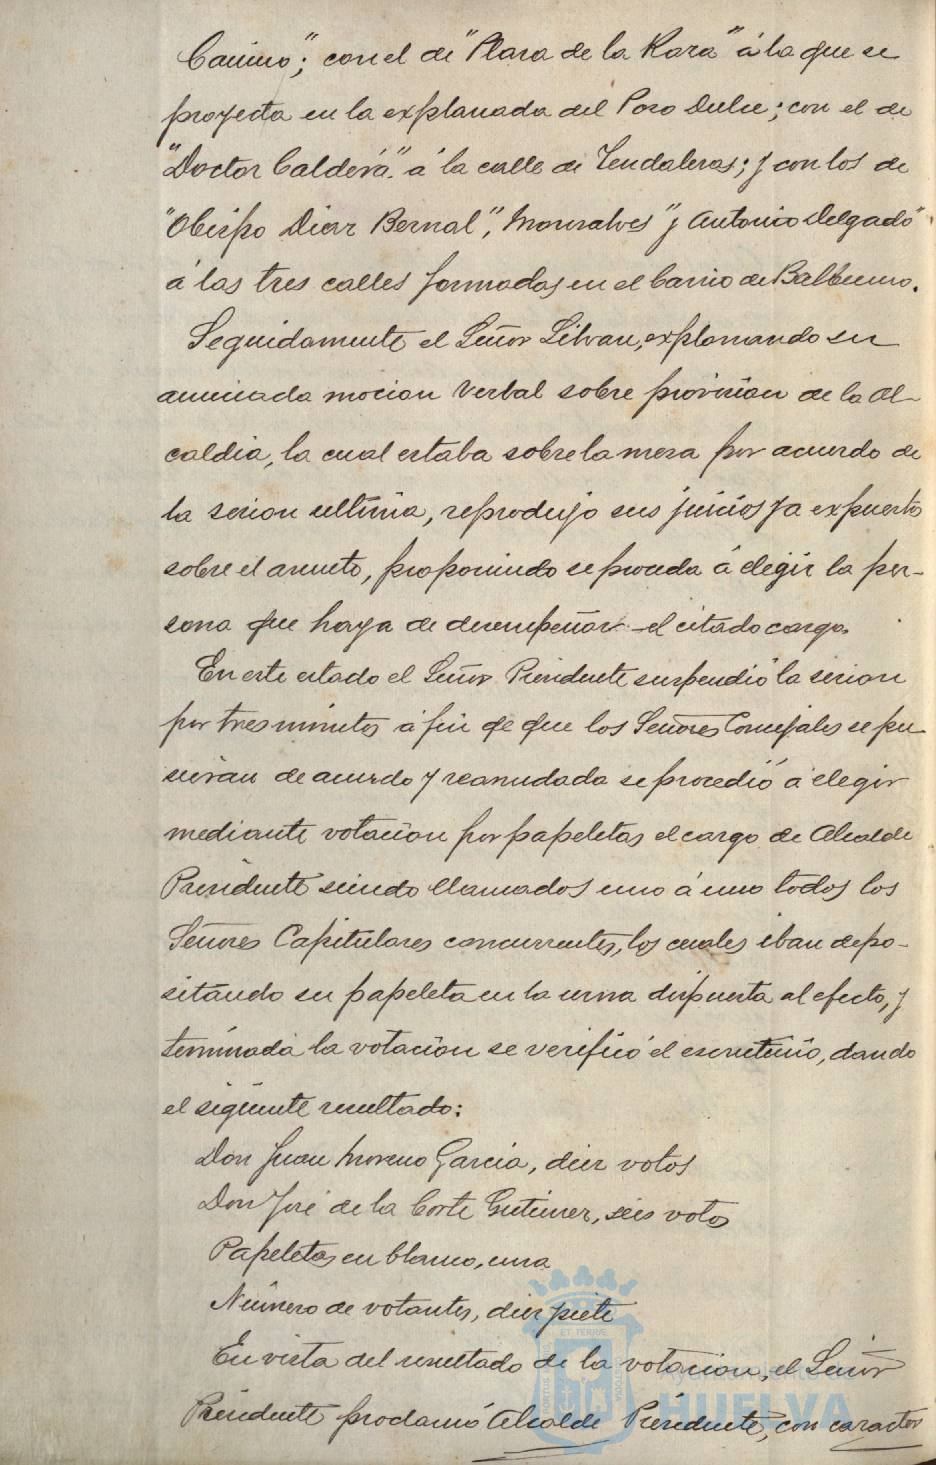 Camino"; con el de "Plaza de la Rara" á la que se
proyecta en la explanada del Pozo Dulce; con el de
"Doctor Calderá" á la calle de Tendaleras; y con los de
"Obispo Diaz Bernal", Monsalves" y Antonio Delgado"
á las tres calles formadas en el barrio de Balbueno.
Seguidamente el Señor Silvan, explanando su
anunciada mocion verbal sobre provision de la Al-
caldia, la cual estaba sobre la mesa por acuerdo de
la sesion ultima, reprodujo sus juicios ya expuestos
sobre el asunto, proponiendo se proceda á elegir la per-
sona que haya de desempeñar el citado cargo.
En este estado el Señor Presidente suspendió la sesion
por tres minutos á fin de que los Señores Concejales se pu
sieran de acuerdo y reanudada se procedió á elegir
mediante votacion por papeletas el cargo de Alcalde
Presidente siendo llamados uno á uno todos los
Señores Capitulares concurrentes, los cuales iban depo-
sitando su papeleta en la urna dispuesta al efecto, y
terminada la votacion se verificó el escrutinio, dando
el siguiente resultado:
Don Juan Moreno Garcia, diez votos
Don José de la Corte Gutierrez, seis votos
Papeletas en blanco, una
Número de votantes, diez siete
En vista del resultado de la votacion, el Señor
Presidente proclamó Alcalde Presidente, con caracter
Ayuntamiento de
HUELVA